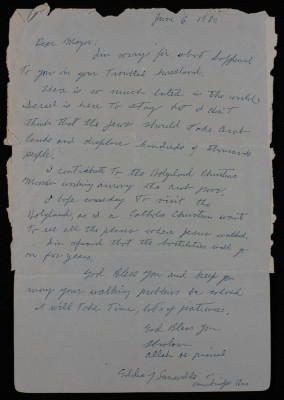 June 6 1980
Dear Mayor:
I'm sorry for what happened
to you in your troubled Homeland.
There is so much hatred in the world.
Israel is here to stay but I don't
think that the Jews should take Arab
lands and displace hundreds of thousands
people.
I contribute to the Holyland Christian
Mission working among the Arab poor.
I hope someday to visit the
Holyland, as a Catholic Christian want
to see all the places where Jesus walked.
I'm afraid that the hostilities will go
on for years.
God Bless You and keep you
may your walking problems be solved
it will take time, lots of patience.
God Bless You
Shalom
Allah be praised
Eddie J
Cambridge